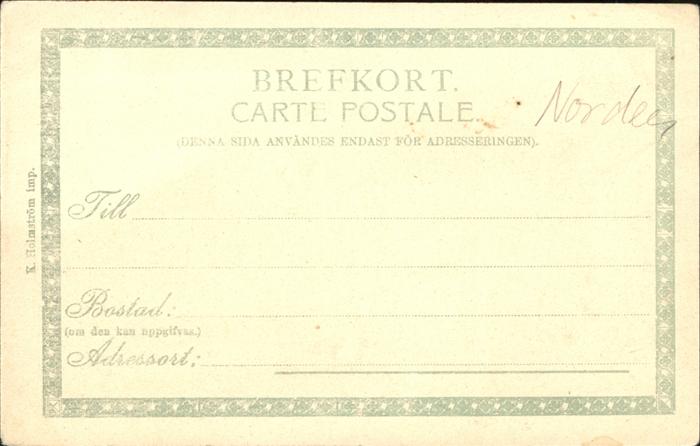 BREFKORT.
CARTE POSTALE.
Norden
(DENNA SIDA ANVÄNDES ENDAST FÖR ADRESSERINGEN).
Till
Bostad:
(om den kan uppgifvas.)
Adressort:
K. Holmström imp.